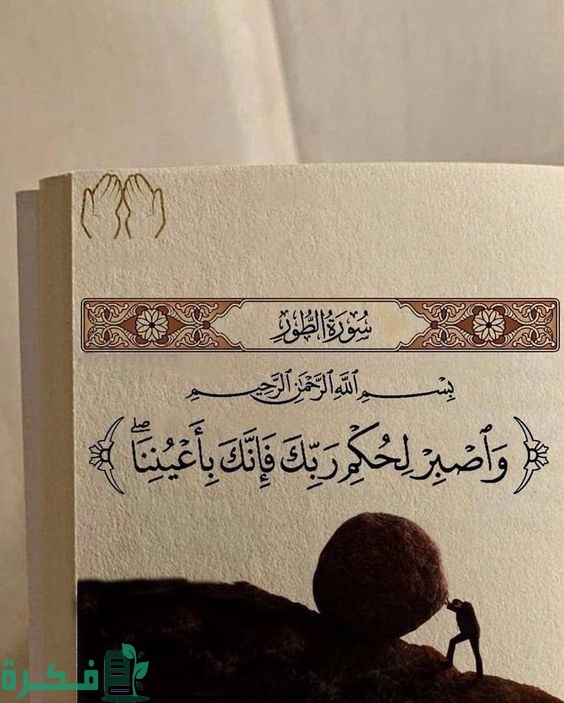 سُورَةُ الطُّورِ
بِسْمِ اللَّهِ الرَّحْمَٰنِ الرَّحِيمِ
﴿وَٱصۡبِرۡ لِحُكۡمِ رَبِّكَ فَإِنَّكَ بِأَعۡيُنِنَاۖ﴾
فكرة